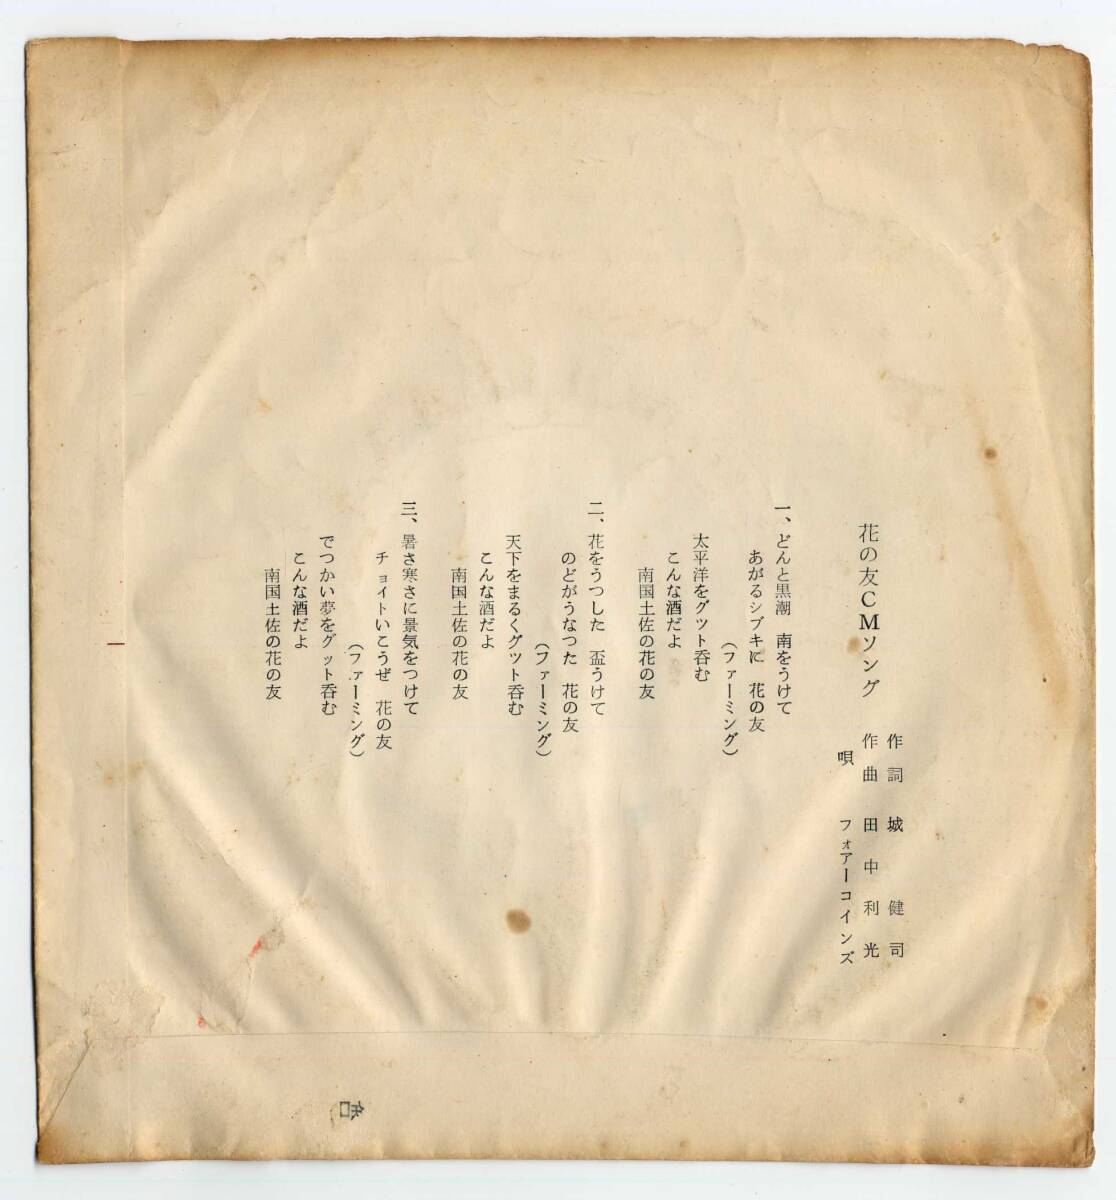 花の友CMソング
作詞 城健司
作曲 田中利光
唄 フォアーコインズ
一、どんと黒潮 南をうけて
あがるシブキに 花の友
(ファーミング)
太平洋をグツト呑む
こんな酒だよ
南国土佐の花の友
二、花をうつした 盃うけて
のどがうなつた 花の友
(ファーミング)
天下をまるくグツト呑む
こんな酒だよ
南国土佐の花の友
三、暑さ寒さに景気をつけて
チョイトいこうぜ 花の友
(ファーミング)
でつかい夢をグット呑む
こんな酒だよ
南国土佐の花の友